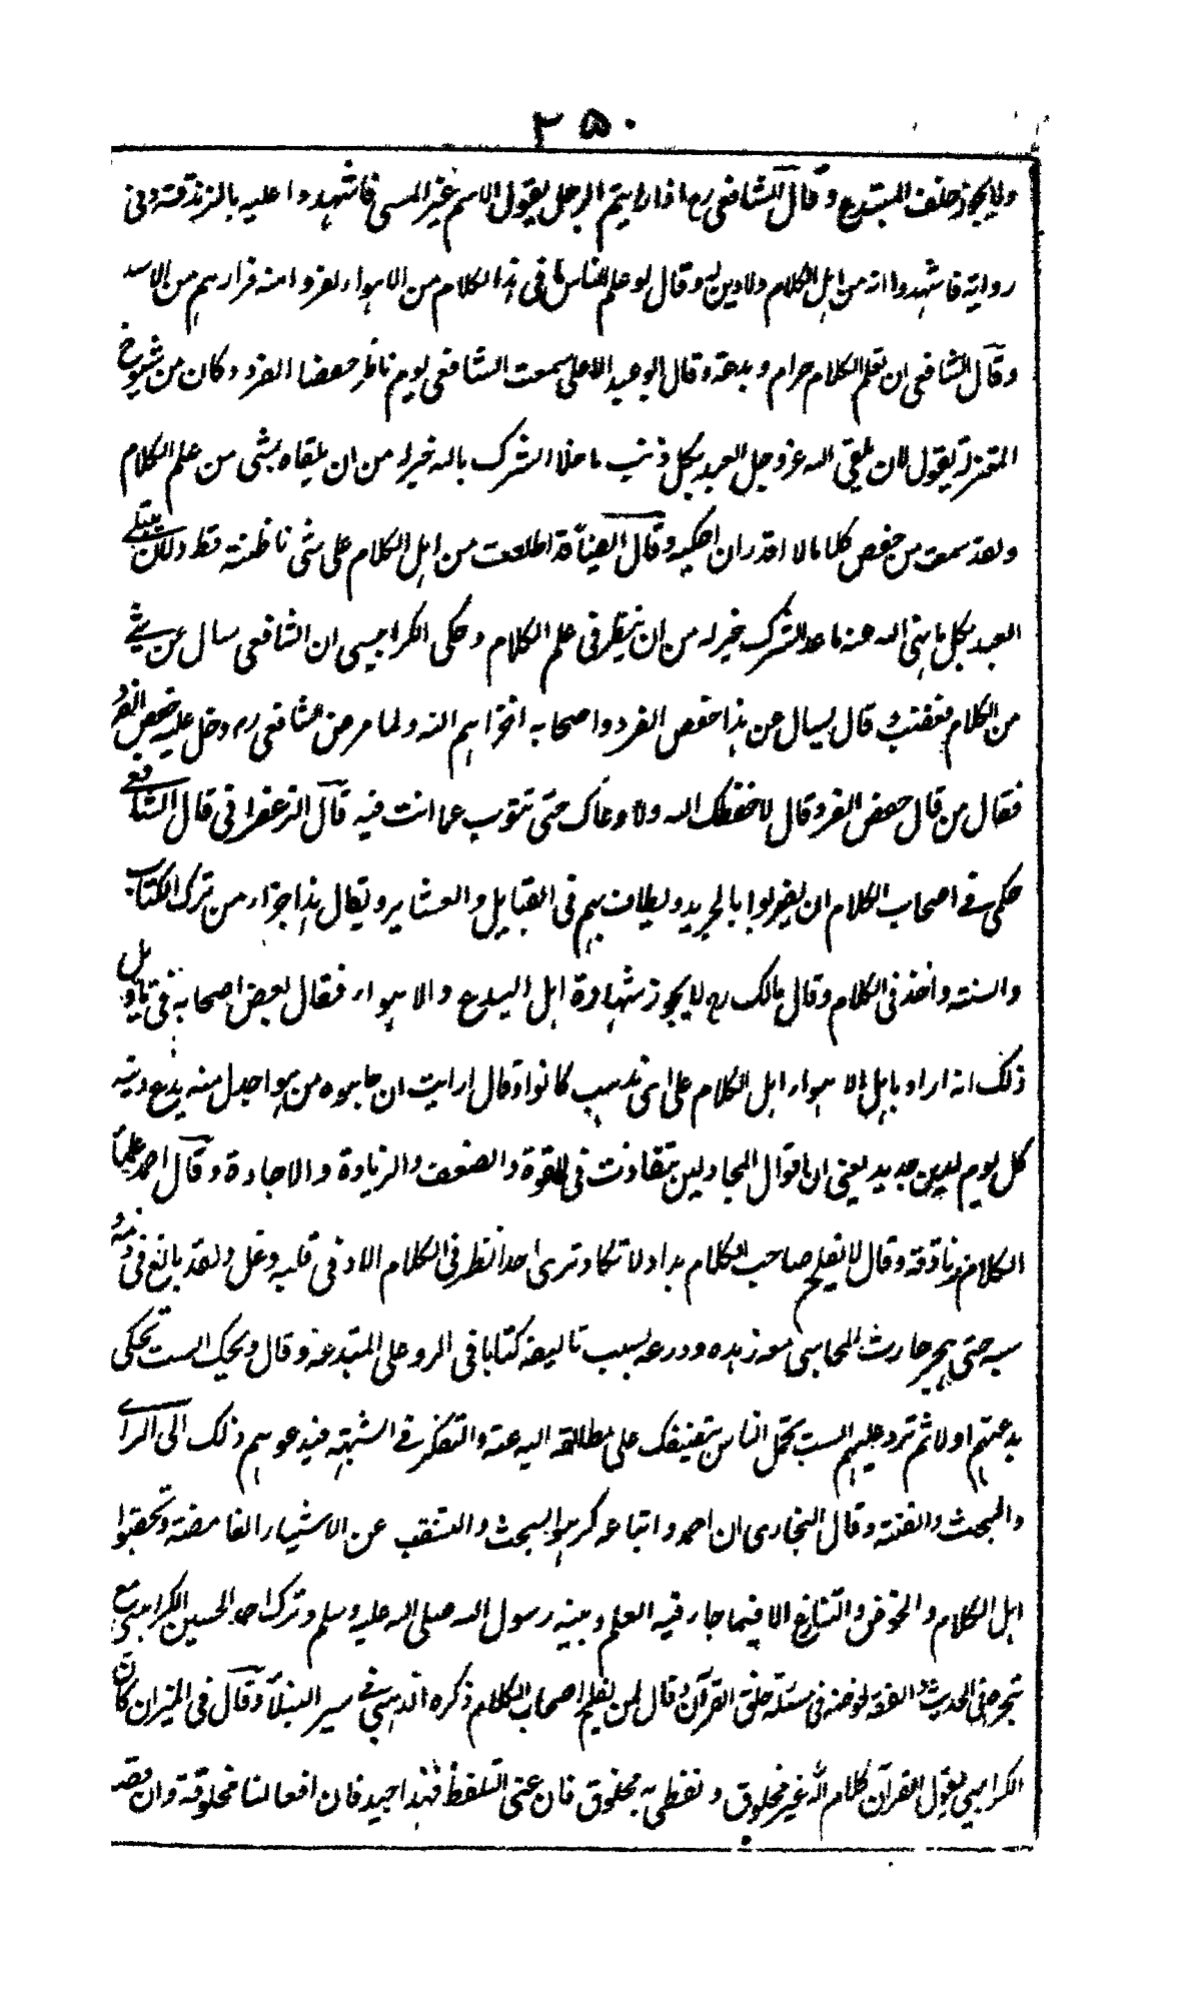 ۲۵۰
ولا يجوز خلف المبتدع وقال الشافعى رح اذا رايتم الرجل يقول الاسم غير المسمى فاشهدوا عليه بالزندقة وفى
رواية فاشهدوا انه من اهل الكلام ولا دين له وقال لو علم الناس ما فى هذا الكلام من الاهواء لفروا منه فرارهم من الاسد
وقال الشافعى ان تعلم الكلام حرام وبدعة وقال ابو عبد الاعلى سمعت الشافعى يوم ناظر حفصا الفرد وكان من شيوخ
المعتزلة يقول لان يلقى الله عز وجل العبد بكل ذنب ما خلا الشرك بالله خير له من ان يلقاه بشى من علم الكلام
ولقد سمعت من حفص كلاما لا اقدر ان احكيه وقال ايضا قد اطلعت من اهل الكلام على شى ما ظننته قط ولان يبتلى
العبد بكل ما نهى الله عنه ما عدا الشرك خير له من ان ينظر فى علم الكلام وحكى الكرابيسى ان الشافعى سال عن شے
من الكلام فغضب وقال يسال عن هذا حفص الفرد واصحابه اخزاهم الله ولما مرض الشافعى رح دخل عليه حفص الفرد
فقال من قال حفص الفرد قال لا حفظك الله ولا رعاك حتى تتوب عما انت فيه قال الزعفرانى قال الشافعى
حكمى فے اصحاب الكلام ان يضربوا بالجريد ويطاف بهم فى القبايل والعشاير ويقال هذا جزاء من ترك الكتاب
والسنة واخذ فى الكلام وقال مالك رح لا يجوز شهادة اهل البدع والاهواء فقال بعض اصحابه فى تاويل
ذلك انه اراد باهل الاهواء اهل الكلام على اى مذهب كانوا وقال ارايت ان جاءه من هو اجدل منه يدع دينه
كل يوم لدين جديد يعنى ان اقوال المجادلين تتفاوت فى القوة والضعف والزيادة والاجادة وقال احمد علماء
الكلام زنادقة وقال لا يفلح صاحب الكلام ابدا ولا تكاد ترى احدا نظر فى الكلام الا وفى قلبه دغل ولقد بالغ فى ذمه
حتى هجر حارث المحاسبى مع زهده وورعه بسبب تاليفه كتابا فى الرد على المبتدعة وقال ويحك الست تحكى
بدعتهم اولا ثم ترد عليهم الست تحمل الناس بتصنيفك على مطالعة البدعة والتفكر فے الشبهة فيدعوهم ذلك الى الراے
والبحث والفتنة وقال البخارى ان احمد واتباعه كرهوا البحث والتنقب عن الاشياء الغامضة وتجنبوا
اهل الكلام والخوض والتنازع الا فيما جاء فيه العلم وبينه رسول الله صلى الله عليه وسلم وترك احمد الحسين الكرابيسى مع
تبحره فى الحديث والفقه لخوضه فى مسئلة خلق القرآن وقال لمن يفلح اصحاب الكلام ذكره الذهبى فے سير النبلاء وقال فى الميزان كان
الكرابيسى يقول القرآن كلام الله غير مخلوق ولفظى به مخلوق فان عنى التلفظ فهذا جيد فان افعالنا مخلوقة وان قصد